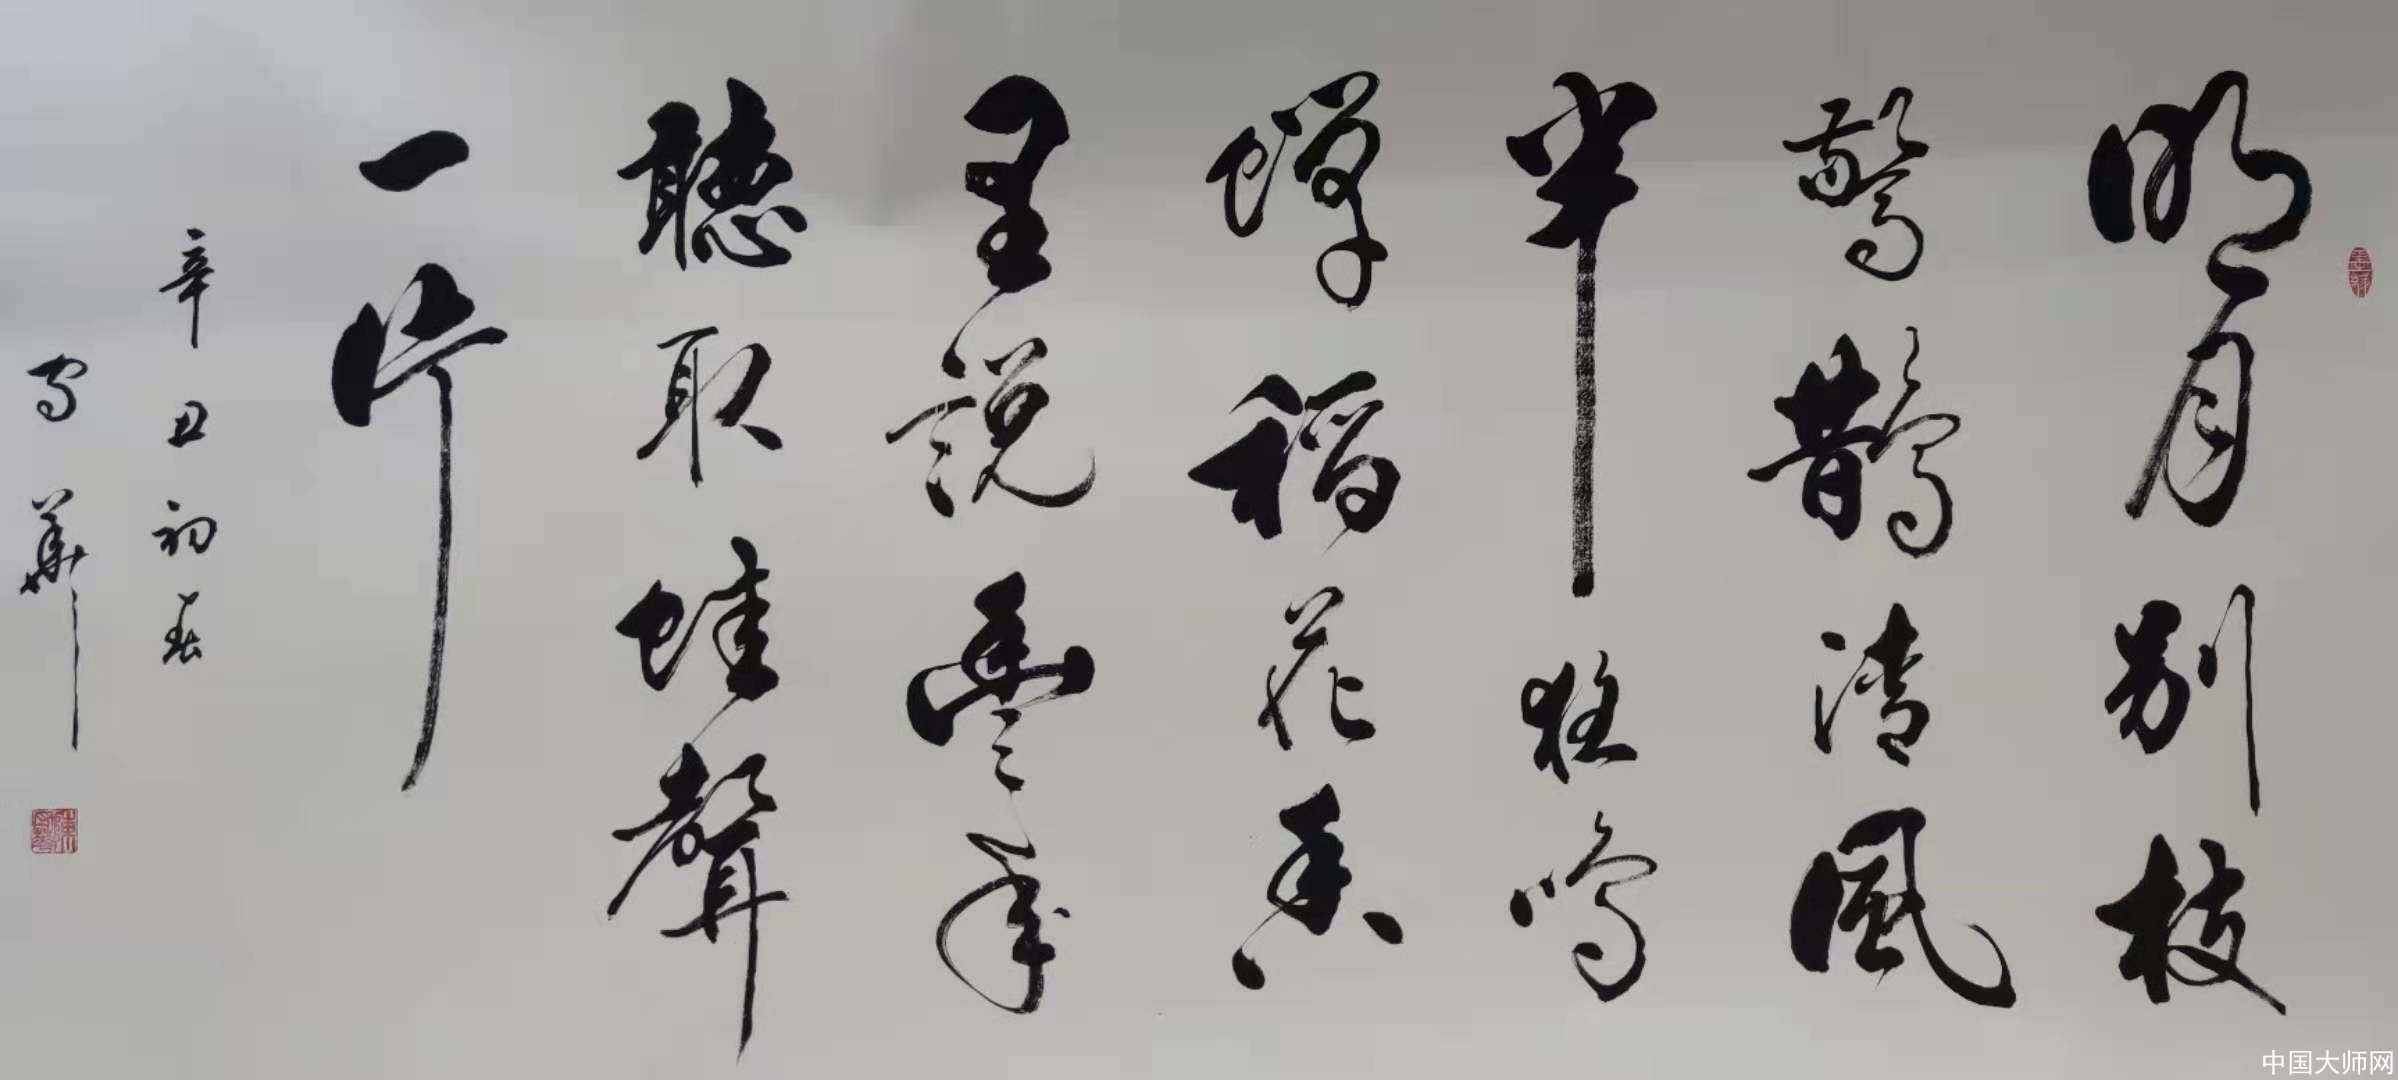 明月別枝
驚鵲清風
半夜鳴
蟬稻花香
里說豐年
聽取蛙聲
一片
辛丑初春
華
中国大师网